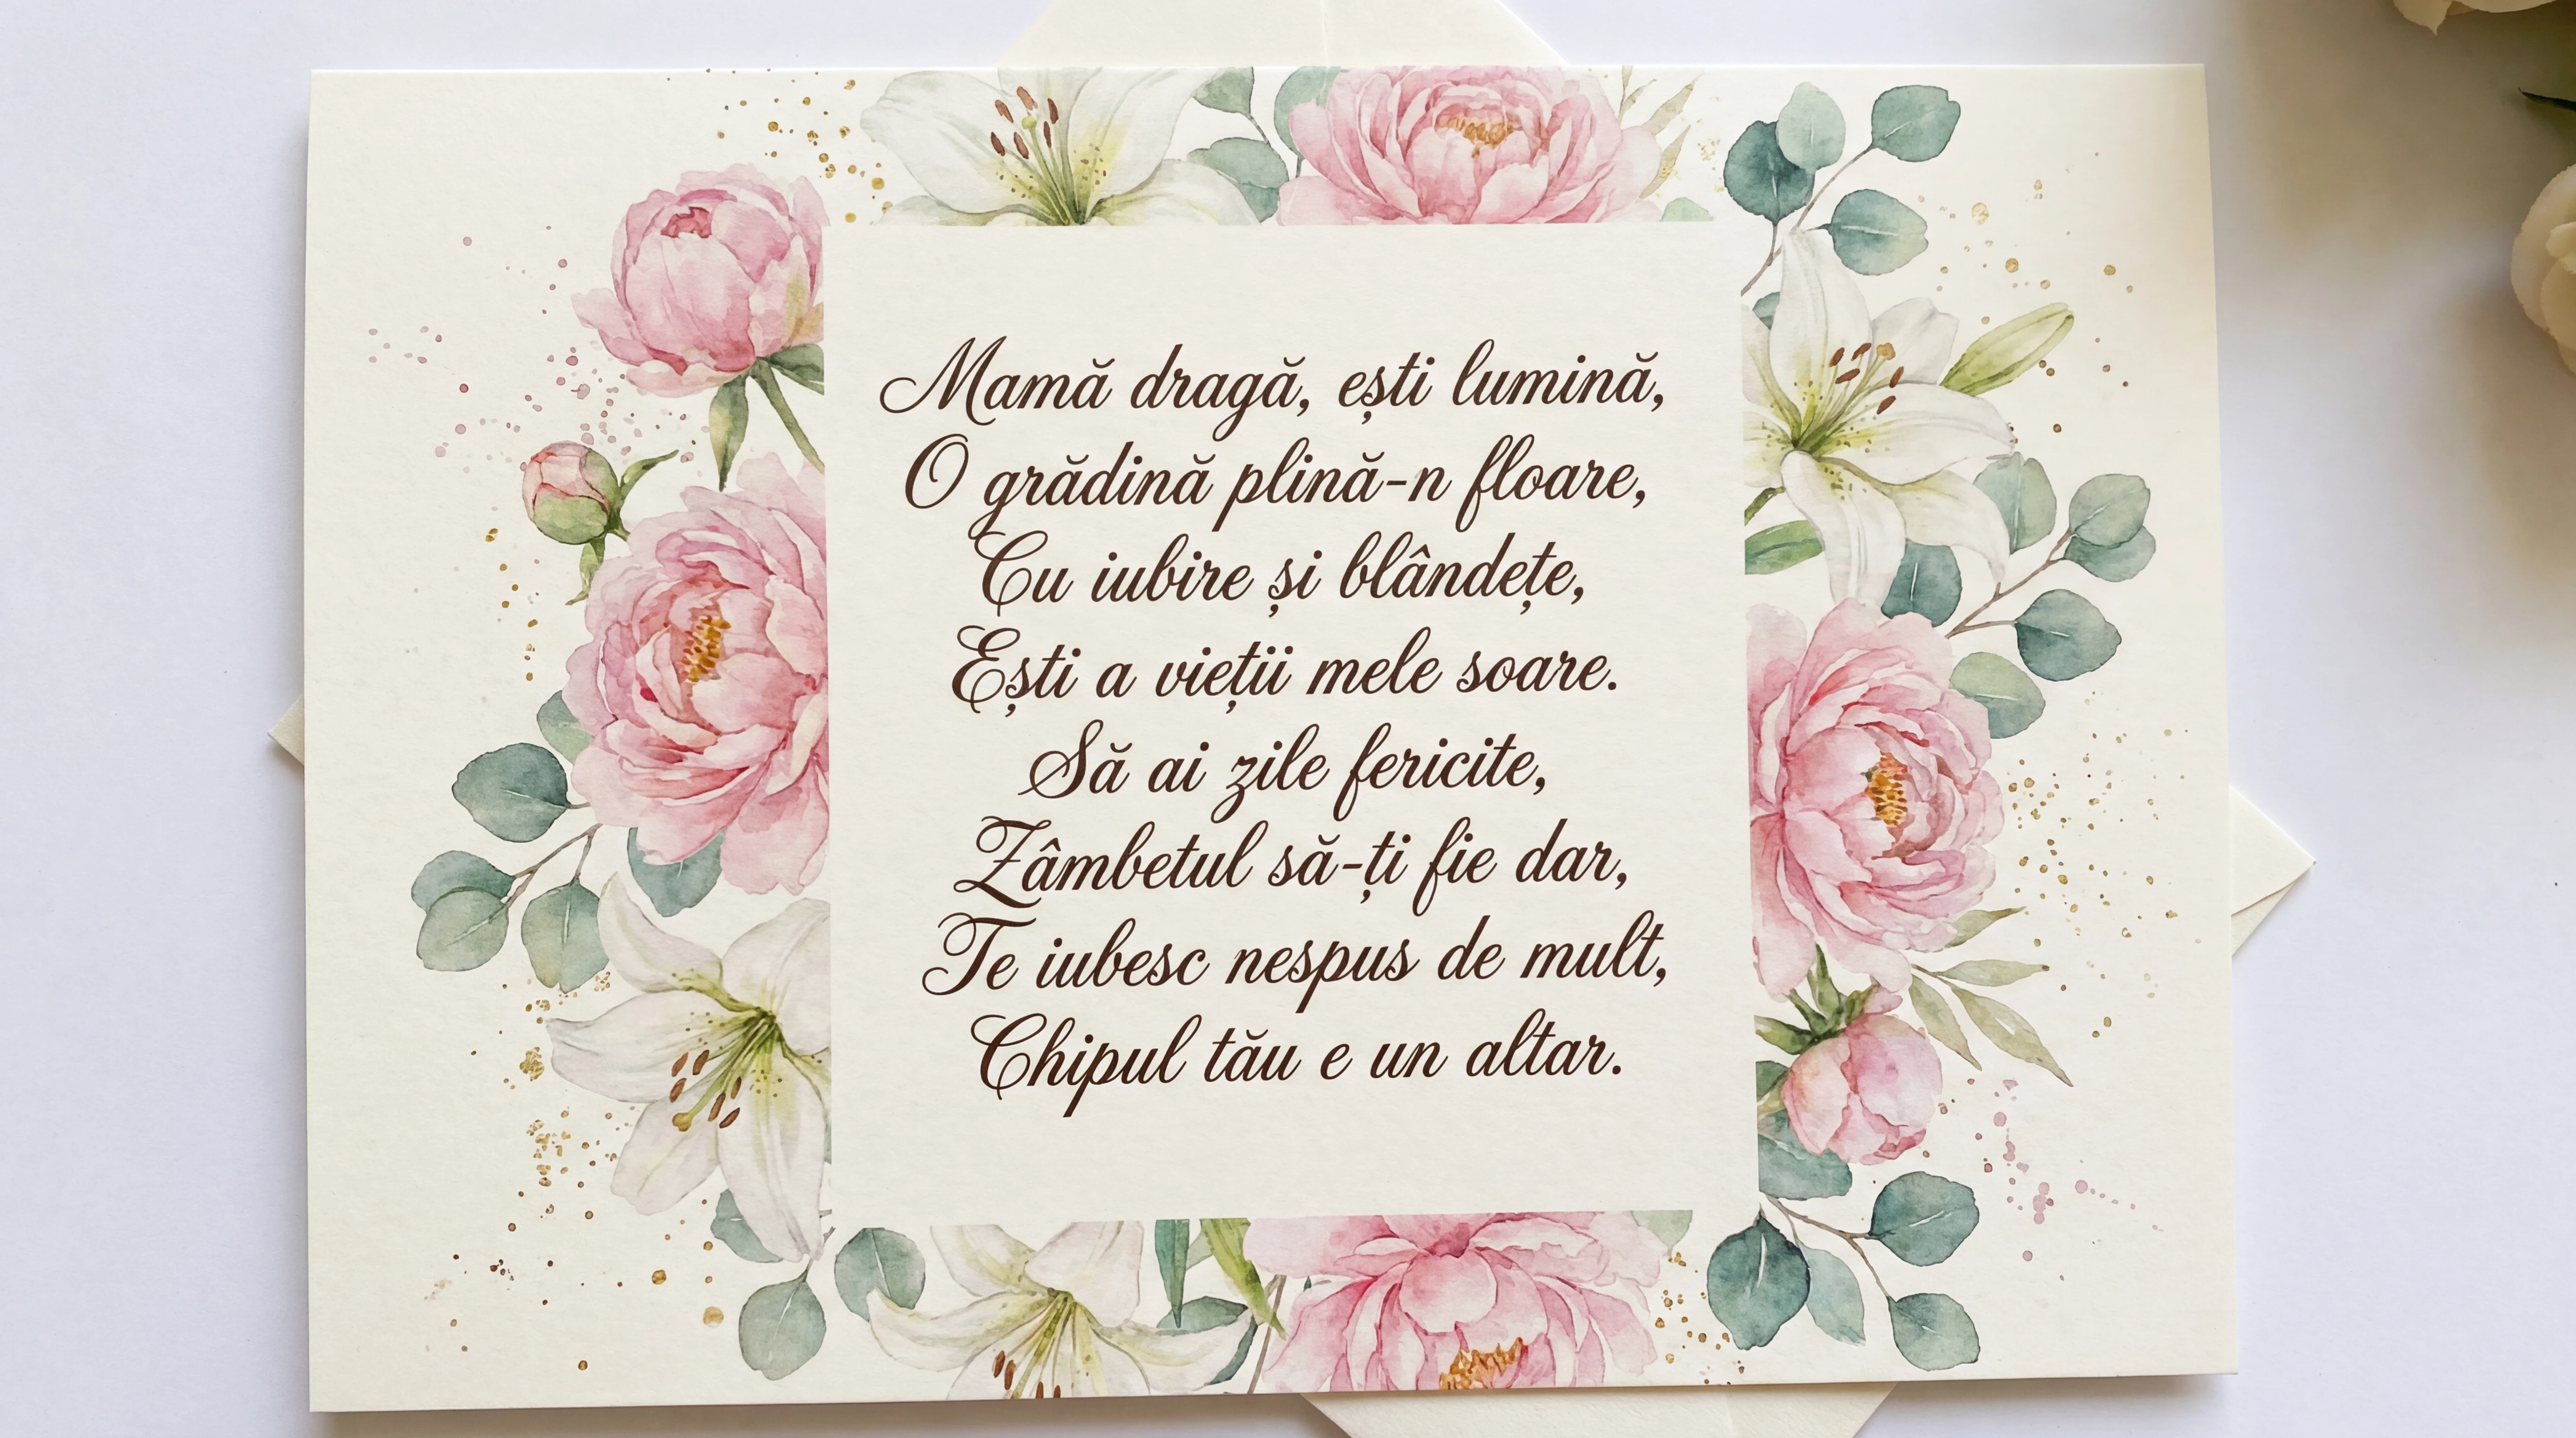 Mamă dragă, ești lumină,
O grădină plină-n floare,
Cu iubire și blândețe,
Ești a vieții mele soare.
Să ai zile fericite,
Zâmbetul să-ți fie dar,
Te iubesc nespus de mult,
Chipul tău e un altar.